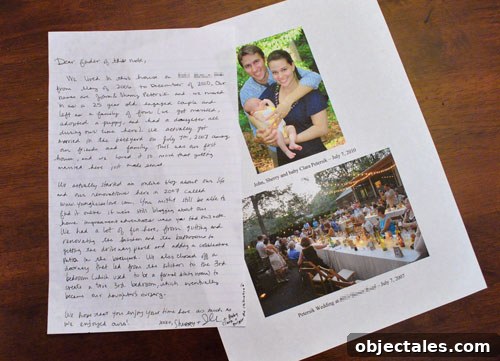 Dear finder of this note,
We lived in this house on
from May of 2006 to December of 2010. Our
names are John & Sherry Petersik, and we moved
in as a 25 year old, engaged couple and
left as a family of four (we got married,
adopted a puppy, and had a daughter all
during our time here). We actually got
married in the backyard on July 7th, 2007 among
our friends and family. This was our first
house, and we loved it so much that getting
married here just made sense.
We actually started an online blog about our life
and our renovations here in 2007 called
www.younghouselove.com. You might still be able to
find it unless it was still blogging about our
home improvement adventures when you find this note.
We had a lot of fun here, from gutting and
renovating the kitchen and the bathrooms to
getting the driveway paved and adding a
patio in the backyard. We also closed off a
doorway that led from the kitchen to the 3rd
bedroom (which used to be a formal dining room) to
create a true 3rd bedroom, which eventually
became our daughter's nursery.
We hope that you enjoy your time here as much as
we enjoyed ours!
Sherry &
John, Sherry and baby Clara Petersik - July 7, 2010
Petersik Wedding at - July 7, 2007
objectales.com